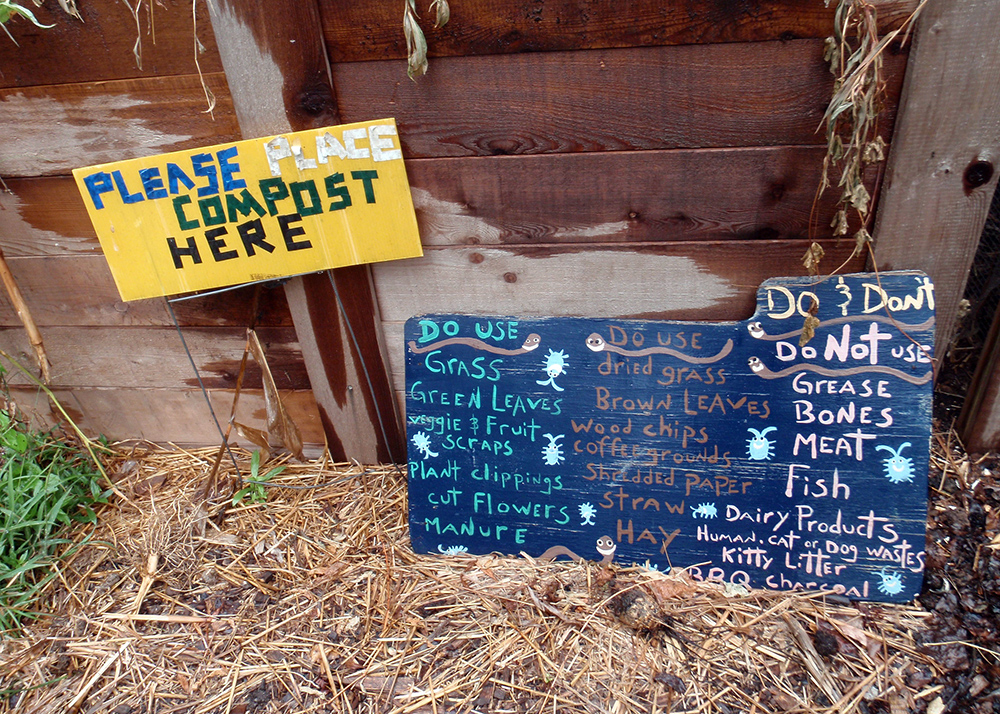 PLEASE PLACE
COMPOST
HERE
DO USE
GRASS
GREEN LEAVES
veggie & Fruit
SCRAPS
PLANT clippings
cut Flowers
MANURE
DO USE
dried grass
Brown LEAVES
wood chips
coffee grounds
Shredded PAPER
STRAW
HAY
DO & Don't
Do Not use
GREASE
BONES
MEAT
Fish
Dairy Products
Human, cat or Dog WASTES
Kitty Litter
BBQ charcoal